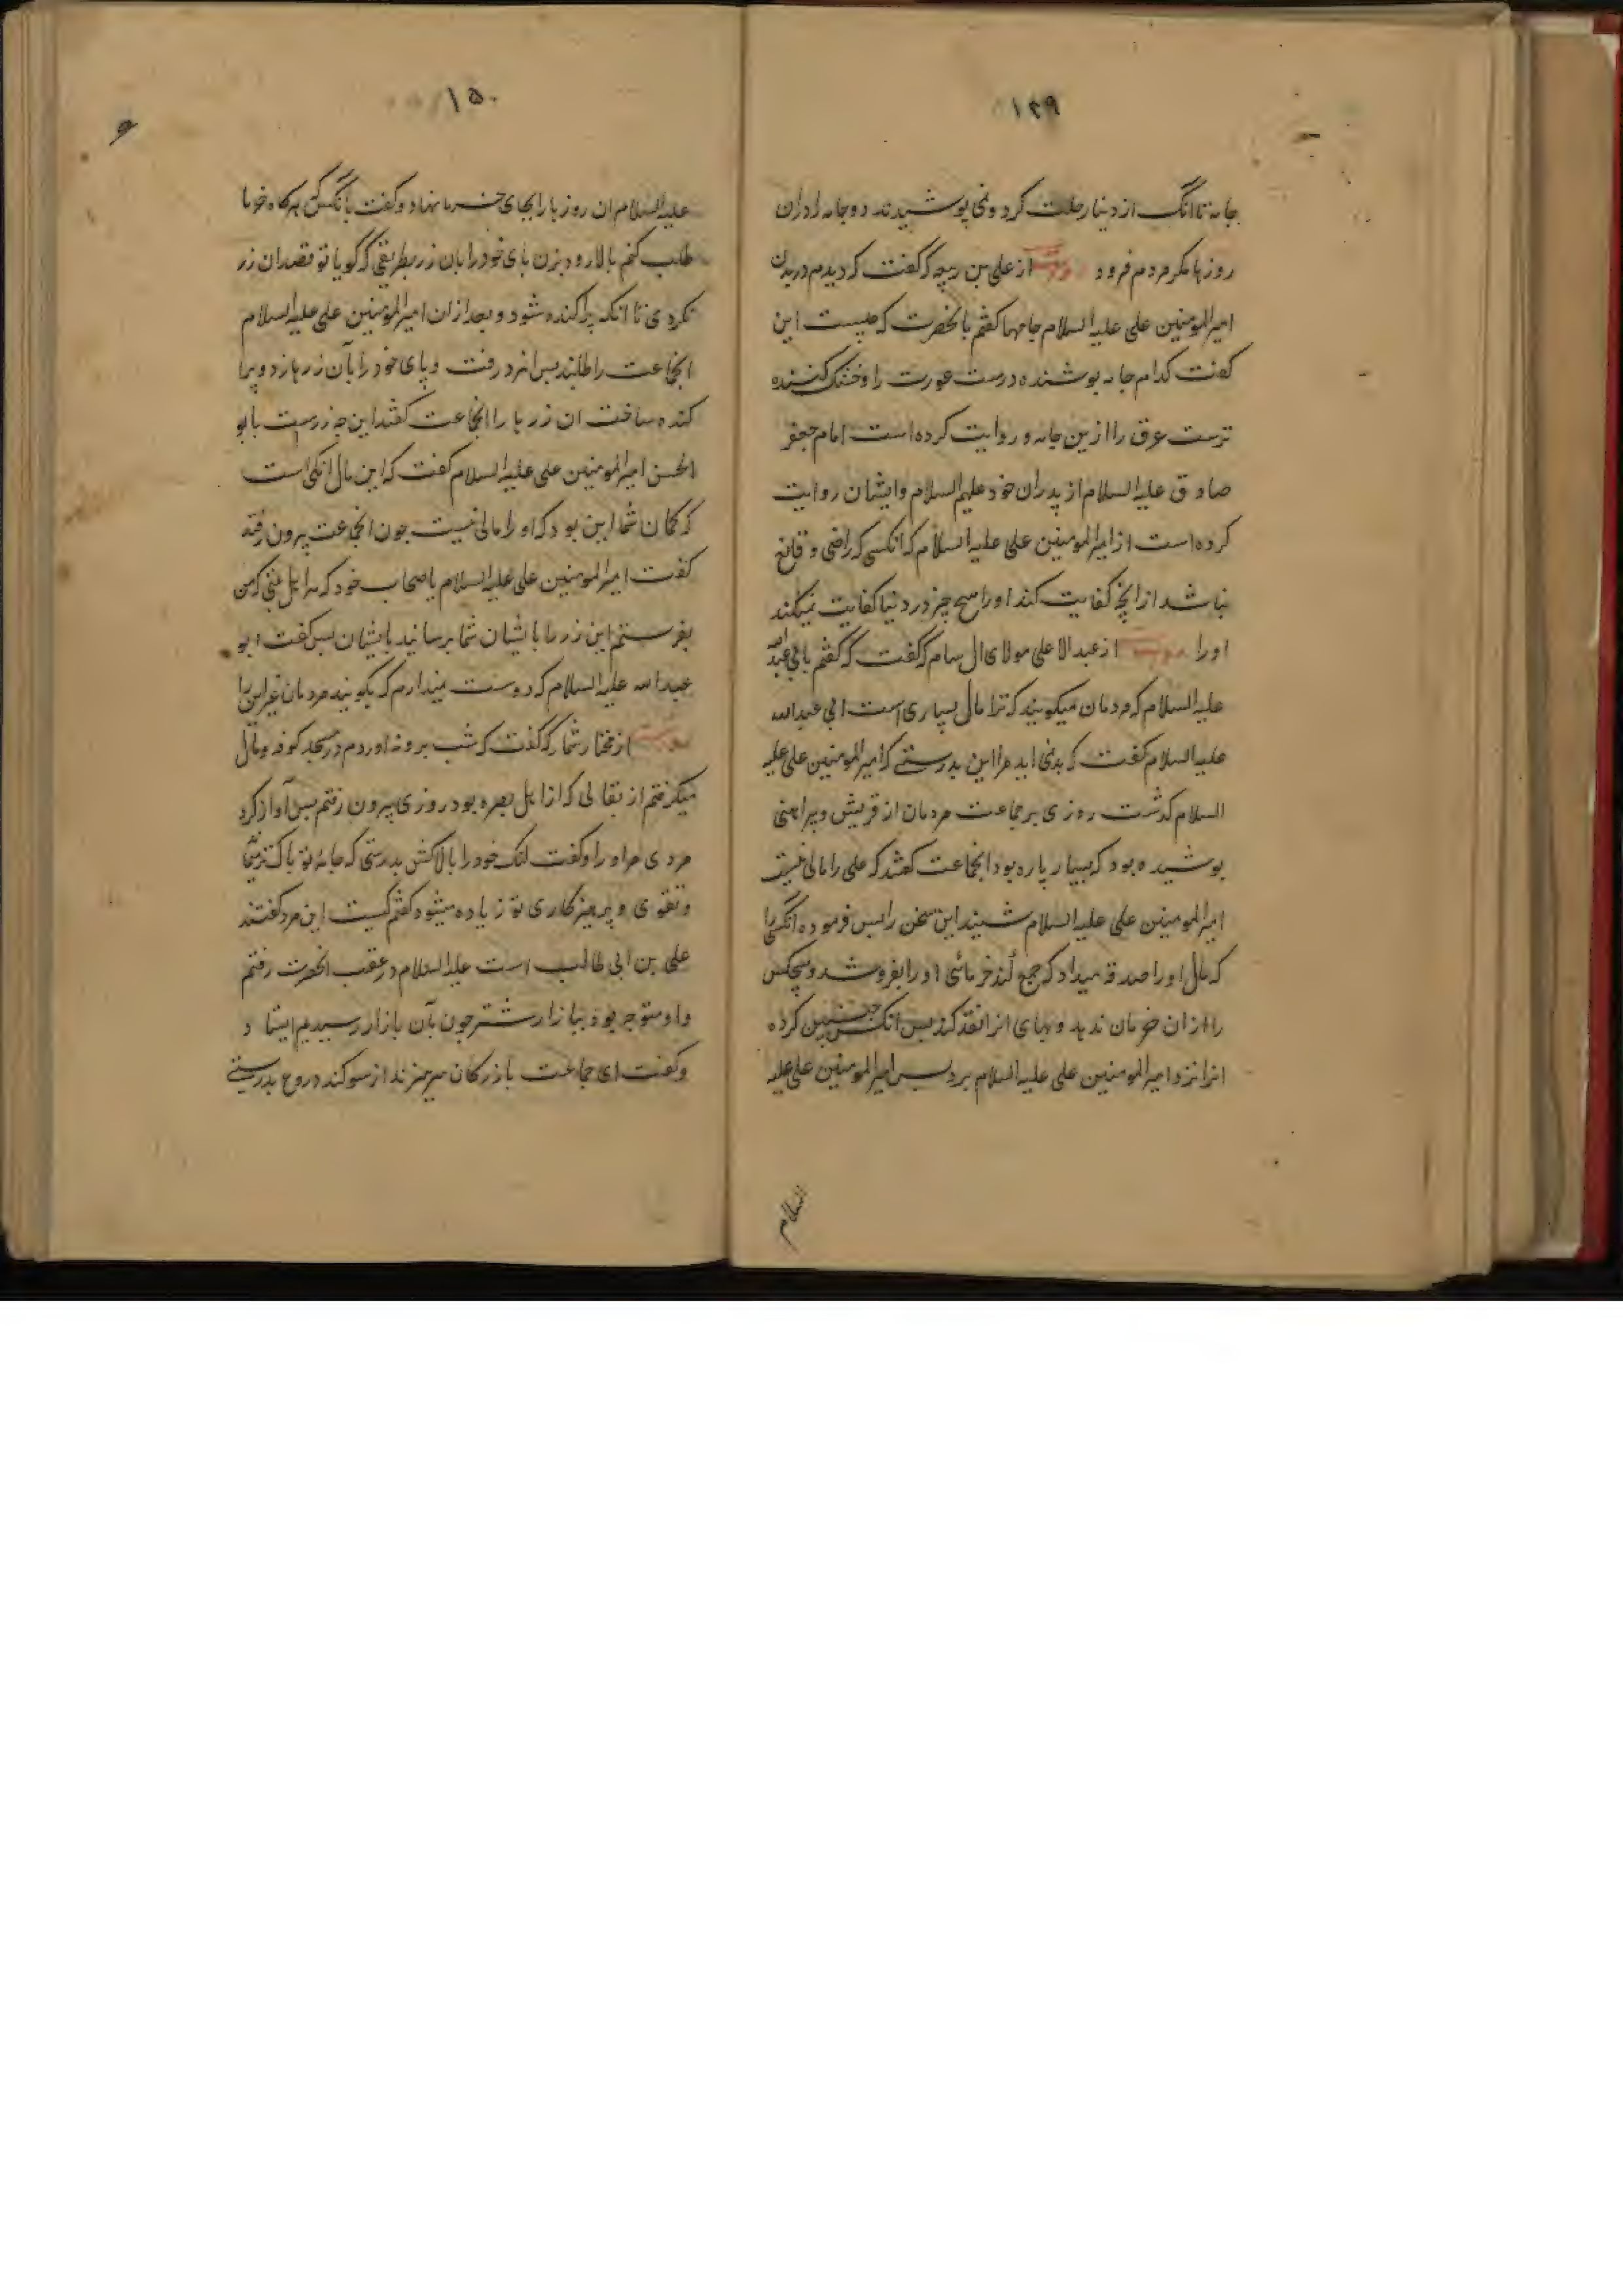 ۱۴۹
جامه تا انک از دنیا رحلت کرد و نمی پوشیدند دو جامه را دران
روزها مکر مردم فرود از علی بن ربیعه که گفت که دیدم در بدن
امیرالمومنین علی علیه السلام جامها گفتم بانحضرت که چیست این
گفت کدام جامه پوشنده درست عورت را و خشک کننده
ترست عرق را ازین جامه و روایت کرده است امام جعفر
صادق علیه السلام از پدران خود علیهم السلام و ایشان روایت
کرده است از امیرالمومنین علی علیه السلام که انکسی که راضی و قانع
نباشد از انچه کفایت کند او را هیچ چیز در دنیا کفایت نمیکند
او را از عبدالاعلی مولای ال سام که گفت که گفتم بابی عبدالله
علیه السلام که مردمان میکویند که ترا مال بسیاری است ابی عبدالله
علیه السلام گفت که بدنمی اید مرا این بدرستی که امیرالمومنین علی علیه
السلام گذشت روزی بر جماعت مردمان از قریش و پیراهنی
پوشیده بود که بسیار پاره بود انجماعت گفتند که علی را مالی نیست
امیرالمومنین علی علیه السلام شنید این سخن را پس فرموده انکسی را
که مال او را صدقه میداد که جمع کند خرمائی او را بفروشد و هیچکس
را ازان خرمان ندهد و بهای انرا نقد کند پس انکس چنین کرده
انرا نزد امیرالمومنین علی علیه السلام برد پس امیرالمومنین علی علیه
السلام
۱۵۰
علیه السلام ان روزها را بجای خرما نهاد و گفت بانکس که هرکاه خرما
طلب کنم بالا رو و بزن پای خود را بان زر بطریقی که گویا تو قصد ان زر
نکردی تا انکه پراکنده شود و بعد ازان امیرالمومنین علی علیه السلام
انجماعت را طلبند پس انمرد رفت و پای خود را بآن زرها زد و پرا
کنده ساخت ان زرها را انجماعت گفتند این چه زرست یا ابو
الحسن امیرالمومنین علی علیه السلام گفت که این مال انکی است
که گمان شما این بود که او را مالی نیست چون انجماعت بیرون رفتند
گفت امیرالمومنین علی علیه السلام باصحاب خود که هر اهل بیتی که من
بفرستم این زر ها بایشان شما برسانید بایشان پس گفت ابو
عبدالله علیه السلام که دوست میدارم که بکویند مردمان غیر این را
از مختار تمار که گفت که شب بروز اوردم در مسجد کوفه و مال
میکرفتم از بقالی که از اهل بصره بود روزی بیرون رفتم پس آواز کرد
مردی مرا و را و گفت لنک خود را بالا کش بدرستی که جامه تو پاکتر میشود
و تقوی و پرهیزکاری تو زیاده میشود گفتم کیست این مرد گفتند
علی بن ابی طالب است علیه السلام در عقب انحضرت رفتم
و او متوجه بود ببازار شتر چون بآن بازار رسیدیم ایستاد و
و گفت ای جماعت بازرکان بپرهیزند از سوکند دروغ بدرستی